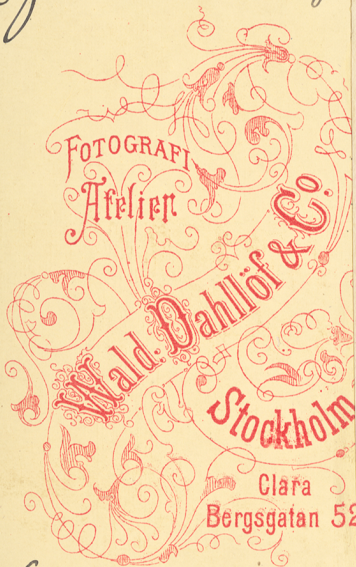 FOTOGRAFI
Atelier
Wald. Dahllöf & Co
Stockholm
Clara
Bergsgatan 52